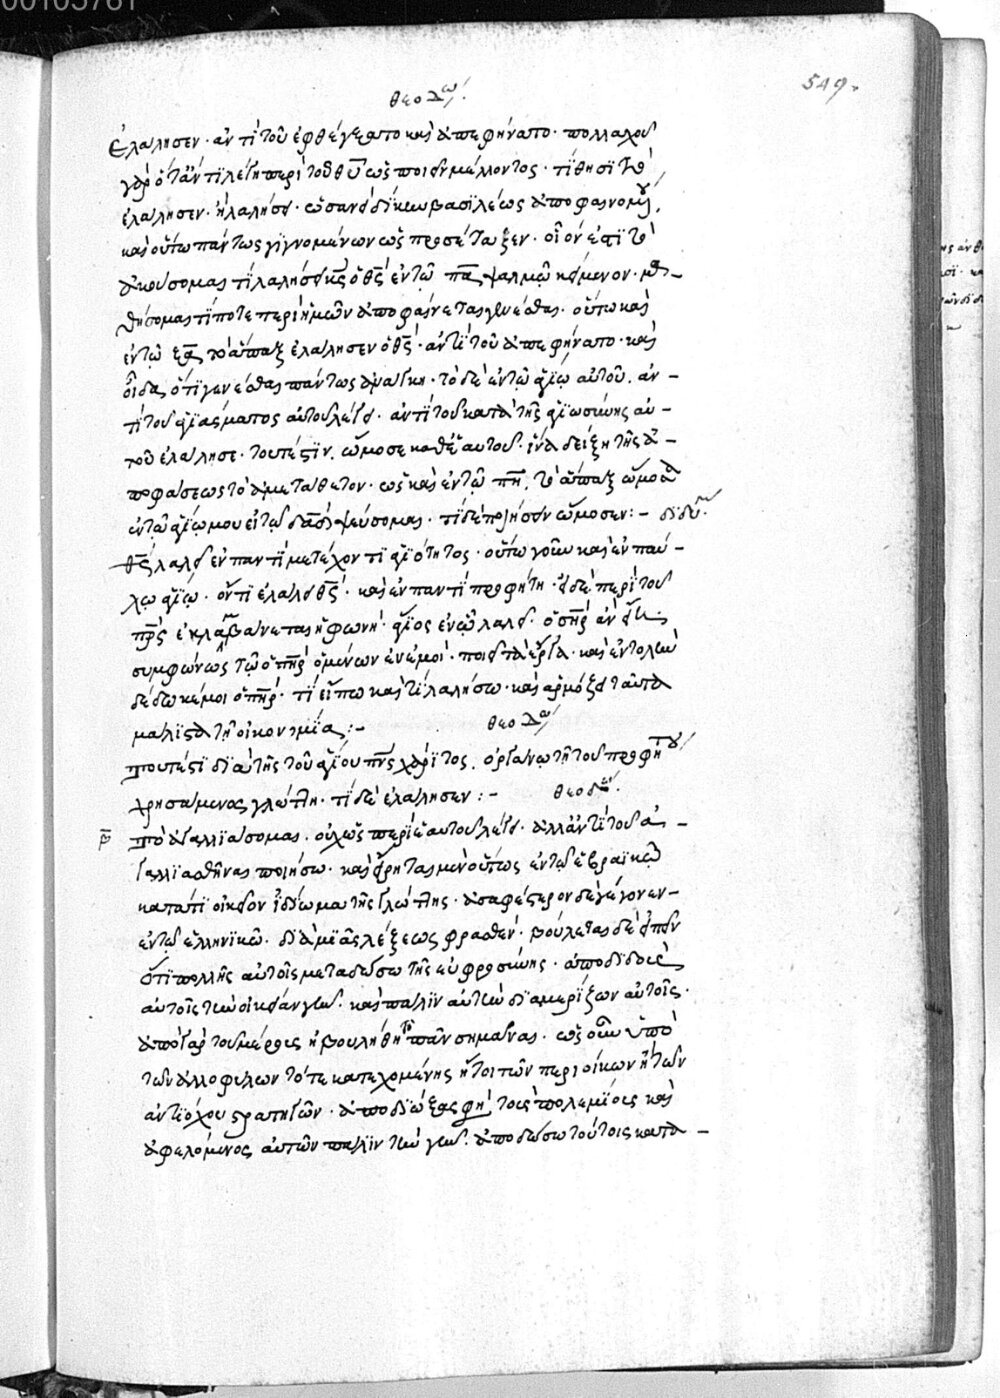 00105761
549.
θεοδω/.
ἐλάλησεν· ἀντὶ τοῦ ἐφθέγξατο καὶ ἀπεφήνατο· πολλαχοῦ
γὰρ ὅταν τι λέγη περὶ τοῦ θυ ὥς ποιεῖν μέλλοντος· τίθησι τὸ
ἐλάλησεν· ἢ λαλήσει· ὡσανεὶ δίκην βασιλέως ἀποφαινομ
καὶ οὕτω πάντως γιγνομένων ὡς προσέταξεν· οἷον ἐστὶ τὸ
ἀκούσομαι τί λαλήσει κς ὁ θς ἐν τῷ πδ ψαλμῷ κείμενον· μα–
θήσομαι τί ποτε περὶ ἡμῶν ἀποφαίνεται γενέσθαι· οὕτω καὶ
ἐν τῷ ξα τὸ ἅπαξ ἐλάλησεν ὁ θς· ἀντὶ τοῦ ἀπεφήνατο· καὶ
οἶδα, ὅτι γενέσθαι πάντως ἀνάγκη· τὸ δὲ ἐν τῷ ἁγίῳ αὐτοῦ, ἀν–
τὶ τοῦ ἁγιάσματος αὐτοῦ λέγει· ἀντὶ τοῦ κατὰ τῆς ἁγιωσύνης αὐ–
τοῦ ἐλάλησε· τουτέστιν, ὤμοσε καθ' ἑαυτοῦ· ἵνα δείξη τῆς ἀ–
ποφάσεως τὸ ἀμετάθετον· ὡς καὶ ἐν τῷ πη, τὸ ἅπαξ ὤμοσα
ἐν τῷ ἁγίῳ μου εἰ τῷ δαδ ψεύσομαι· τί δὲ ποιήσειν ὤμοσεν:– διδύ
θς λαλεῖ ἐν παντὶ μετέχοντι ἁγιότητος· οὕτω γοῦν καὶ ἐν παύ–
λῳ ἁγίῳ· ὄντι ἐλάλει θς· καὶ ἐν παντὶ προφήτη· εἰ δὲ περὶ τοῦ
πρς ἐκλαμβάνεται ἡ φωνή· ἅγιος ἐν ᾧ λαλεῖ· ὁ σηρ ἂν εἴη
συμφώνως τῷ ὁ πηρ ὁ μένων ἐν ἐμοὶ· ποιεῖ τὰ ἔργα· καὶ ἐντολὴν
δέδωκέ μοι ὁ πηρ· τί εἴπω καὶ τί λαλήσω· καὶ ἁρμόζει ταῦτα
μάλιστα τῇ οἰκονομίᾳ:– θεοδω/
τουτέστι διὰ τῆς τοῦ ἁγίου πνς χάριτος, ὀργάνῳ τῇ τοῦ προφήτου
χρησάμενος γλώττη· τί δὲ ἐλάλησεν:– θεοδ
τὸ ἀγαλλιάσομαι, οὐχ ὡς περὶ ἑαυτοῦ λέγει· ἀλλ' ἀντὶ τοῦ ἀ–
γαλλιασθῆναι ποιήσω· καὶ εἴρηται μὲν οὕτως ἐν τῷ ἑβραϊκῷ
κατά τι οἰκεῖον ἰδίωμα τῆς γλώττης· ἀσαφέστερον δὲ γέγονεν–
ἐν τῷ ἑλληνικῷ· διὰ μιᾶς λέξεως φρασθέν· βούλεται δὲ εἰπεῖν
ὅτι πολλῆς αὐτοῖς μεταδώσω τῆς εὐφροσύνης· ἀποδιδοὺς
αὐτοῖς τὴν οἰκείαν γῆν· καὶ πάλιν αὐτὴν διαμερίζων αὐτοῖς·
ἀπὸ γὰρ τοῦ μέρους ἠβουλήθη τὸ πᾶν σημᾶναι· ὡς οὖν ὑπὸ
τῶν ἀλλοφύλων τότε κατεχομένης ἤτοι τῶν περιοίκων ἢ τῶν
ἀντιόχου στρατηγῶν· ἀποδιώξας φη τοὺς πολεμίους καὶ
ἀφελόμενος αὐτῶν πάλιν τὴν γῆν· ἀποδώσω τούτοις κατὰ –